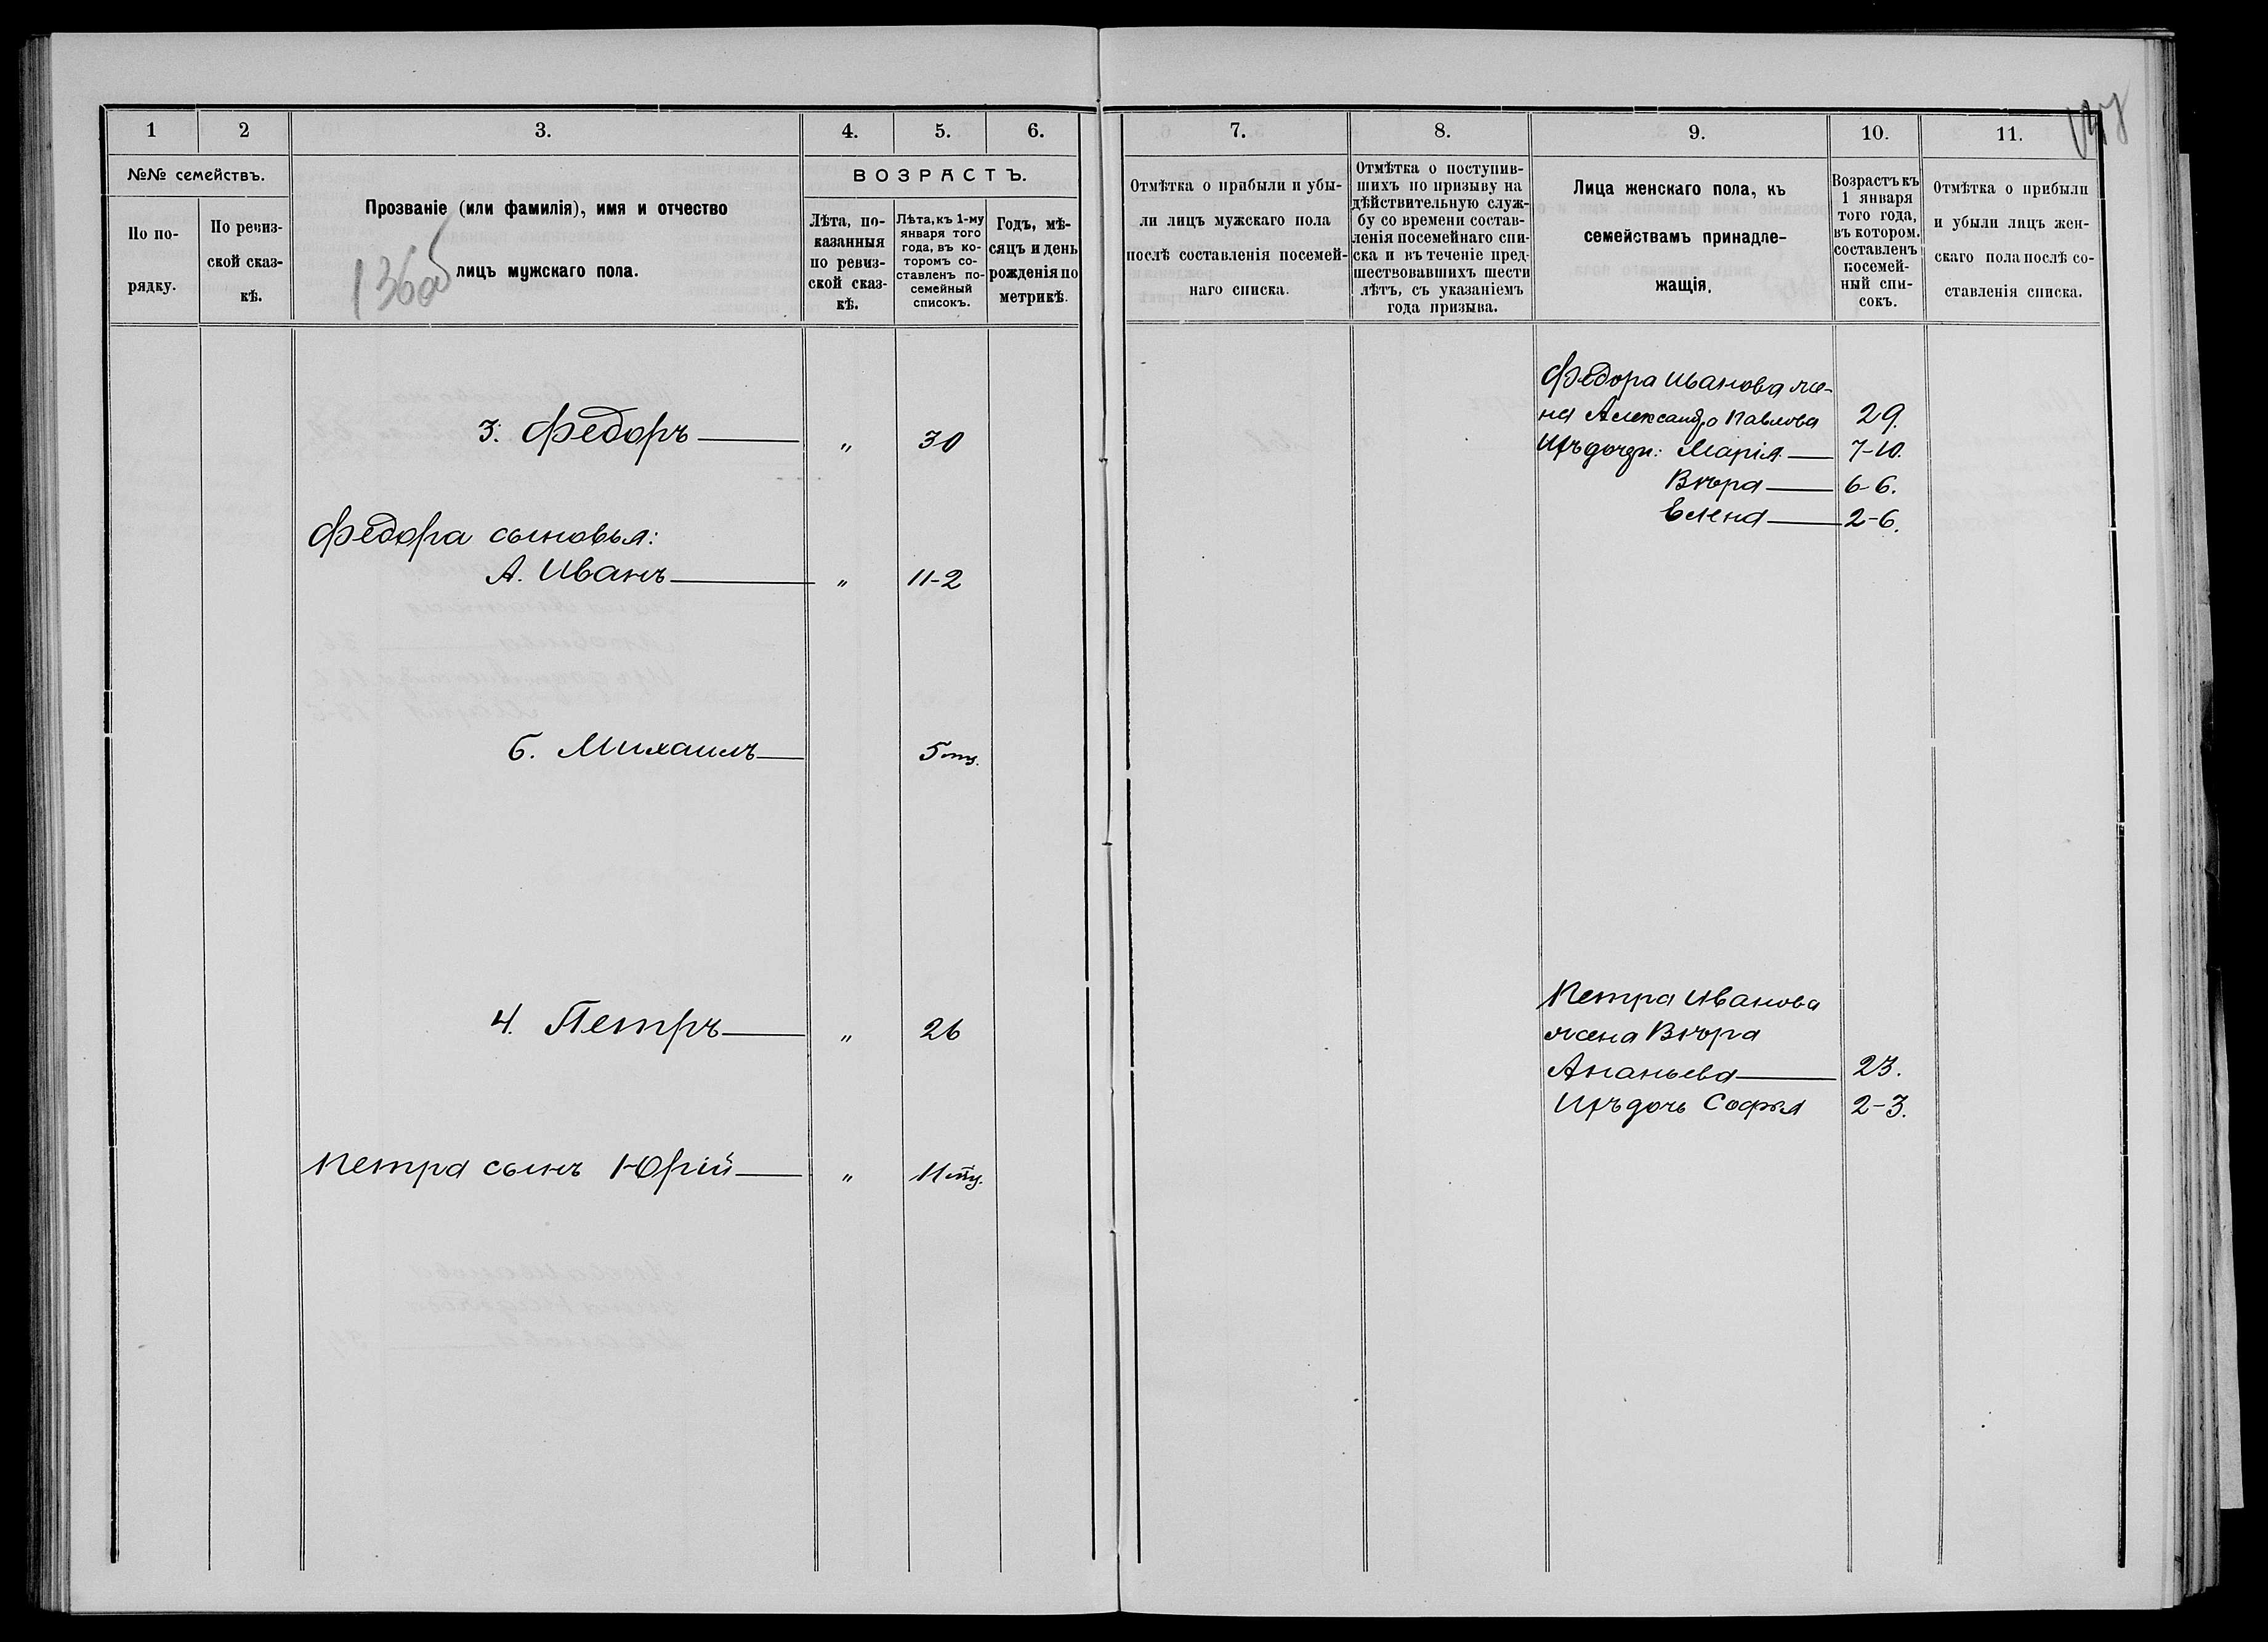 1
2
3.
4.
5.
6.
№№ семействъ.
По по-
рядку.
По ревиз-
ской сказ-
кѣ.
Прозваніе (или фамилія), имя и отчество
лицъ мужскаго пола.
136об
ВОЗРАСТЪ.
Лѣта, по-
казанныя
по ревиз-
ской сказ-
кѣ.
Лѣта, къ 1-му
января того
года, въ ко-
торомъ со-
ставленъ по-
семейный
списокъ.
Годъ, мѣ-
сяцъ и день
рожденія по
метрикѣ.
3. Федоръ " 30
Федора сыновья:
А. Иванъ " 11-2
Б. Михаилъ 5 мц.
4. Петръ " 26
Петра сынъ Юрій " 11 мц.
7.
8.
9.
10.
11.
Отмѣтка о прибыли и убы-
ли лицъ мужскаго пола
послѣ составленія посемей-
наго списка.
Отмѣтка о поступив-
шихъ по призыву на
дѣйствительную служ-
бу со времени состав-
ленія посемейнаго спи-
ска и въ теченіе пред-
шествовавшихъ шести
лѣтъ, съ указаніемъ
года призыва.
Лица женскаго пола, къ
семействамъ принадле-
жащія.
Возрастъ къ
1 января
того года,
въ котором.
составленъ
посемей-
ный спи-
сокъ.
Отмѣтка о прибыли
и убыли лицъ жен-
скаго пола послѣ со-
ставленія списка.
Федора Иванова же-
на Александра Павлова 29.
Ихъ дочери: Марія 7-10.
Вѣра 6-6.
Елена 2-6.
Петра Иванова
жена Вѣра
Ананьева 23.
Ихъ дочь Софья 2-3.